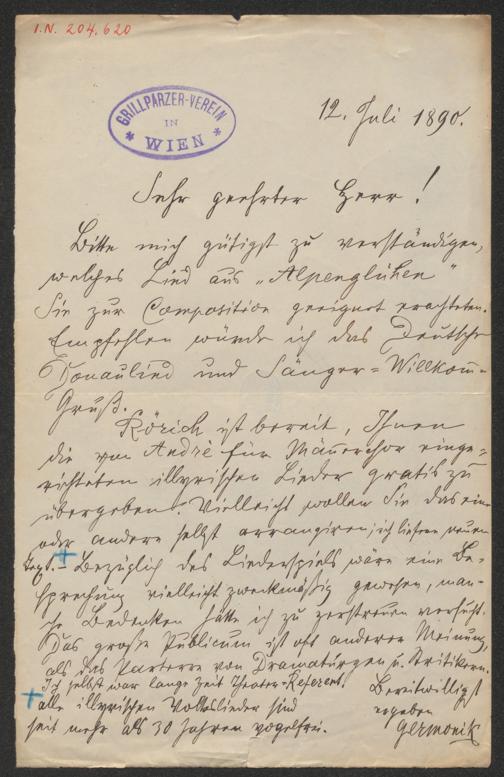 I.N. 204.620
GRILLPARZER-VEREIN
IN
* WIEN *
12. Juli 1890.
Sehr geehrter Herr!
Bitte mich gütigst zu verständigen,
welches Lied aus „Alpenglühen“
Sie zur Composition geeignet erachteten.
Empfehlen würde ich das Deutsche
Donaulied und Sänger=Willkomm=
Gruß.
Rörich ist bereit, Ihnen
die von André für Männerchor einge=
richteten illyrischen Lieder gratis zu
übergeben. Vielleicht wollen Sie das eine
oder andere selbst arrangiren; ich liefere neuen
Text. + – Bezüglich des Liederspiels wäre eine Be=
sprechung vielleicht zweckmäßig gewesen, man=
che Bedenken hätte ich zu zerstreuen versucht.
Das große Publicum ist oft anderer Meinung,
als das Parterre von Dramaturgen u. Kritikern.
Ich selbst war lange Zeit Theater-Referent.
Bereitwilligst
+ alle illyrischen Volkslieder sind
ergeben
seit mehr als 30 Jahren vogelfrei.
Germonik